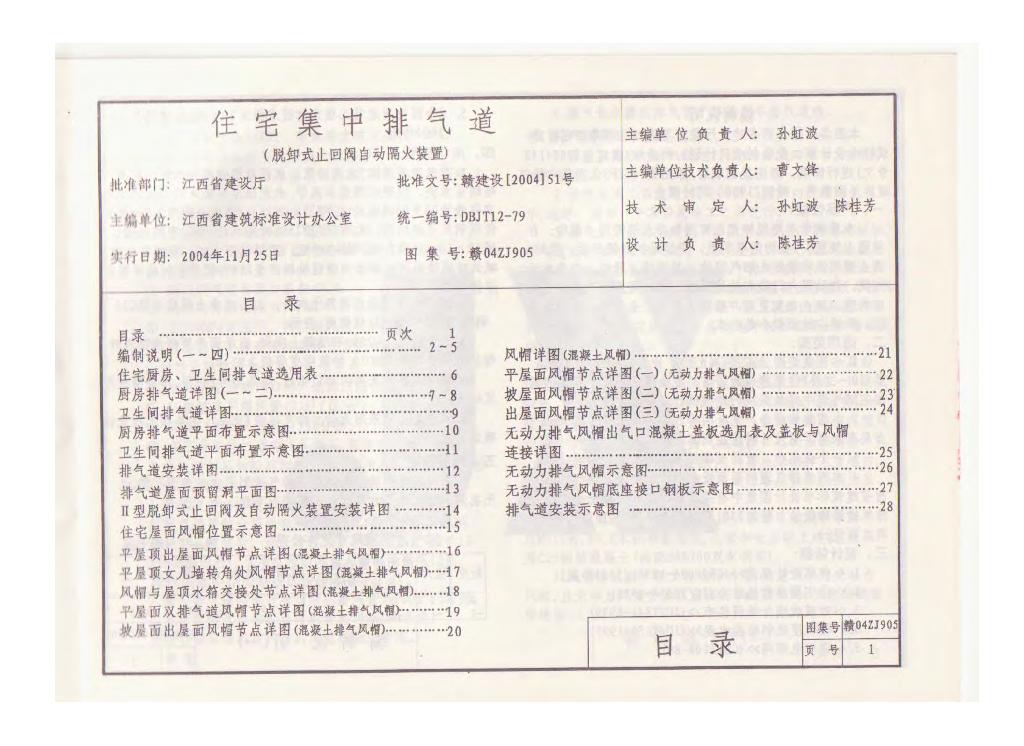 住宅集中排气道
(脱卸式止回阀自动隔火装置)
批准部门: 江西省建设厅
批准文号:赣建设[2004]51号
主编单位: 江西省建筑标准设计办公室
统一编号:DBJT12-79
实行日期: 2004年11月25日
图 集 号:赣04ZJ905
主编单位负责人: 孙虹波
主编单位技术负责人: 曹文锋
技术审定人: 孙虹波 陈桂芳
设计负责人: 陈桂芳
目 录
目录 ………… 页次 1
编制说明(一~四)………… 2~5
住宅厨房、卫生间排气道选用表………… 6
厨房排气道详图(一~二)…………7~8
卫生间排气道详图…………9
厨房排气道平面布置示意图…………10
卫生间排气道平面布置示意图…………11
排气道安装详图…………12
排气道屋面预留洞平面图…………13
Ⅱ型脱卸式止回阀及自动隔火装置安装详图…………14
住宅屋面风帽位置示意图…………15
平屋顶出屋面风帽节点详图(混凝土排气风帽)…………16
平屋顶女儿墙转角处风帽节点详图(混凝土排气风帽)……17
风帽与屋顶水箱交接处节点详图(混凝土排气风帽)……18
平屋面双排气道风帽节点详图(混凝土排气风帽)…………19
坡屋面出屋面风帽节点详图(混凝土排气风帽)…………20
风帽详图(混凝土风帽)…………21
平屋面风帽节点详图(一)(无动力排气风帽)…………22
坡屋面风帽节点详图(二)(无动力排气风帽)…………23
出屋面风帽节点详图(三)(无动力排气风帽)…………24
无动力排气风帽出气口混凝土盖板选用表及盖板与风帽
连接详图…………25
无动力排气风帽示意图…………26
无动力排气风帽底座接口钢板示意图…………27
排气道安装示意图…………28
目 录
图集号 赣04ZJ905
页 号 1